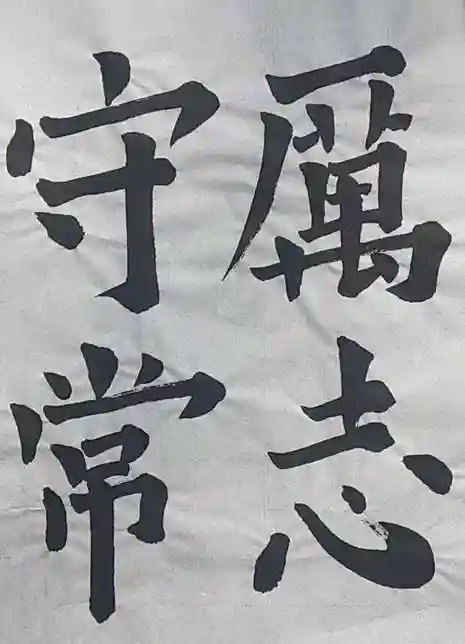 厲志
守常